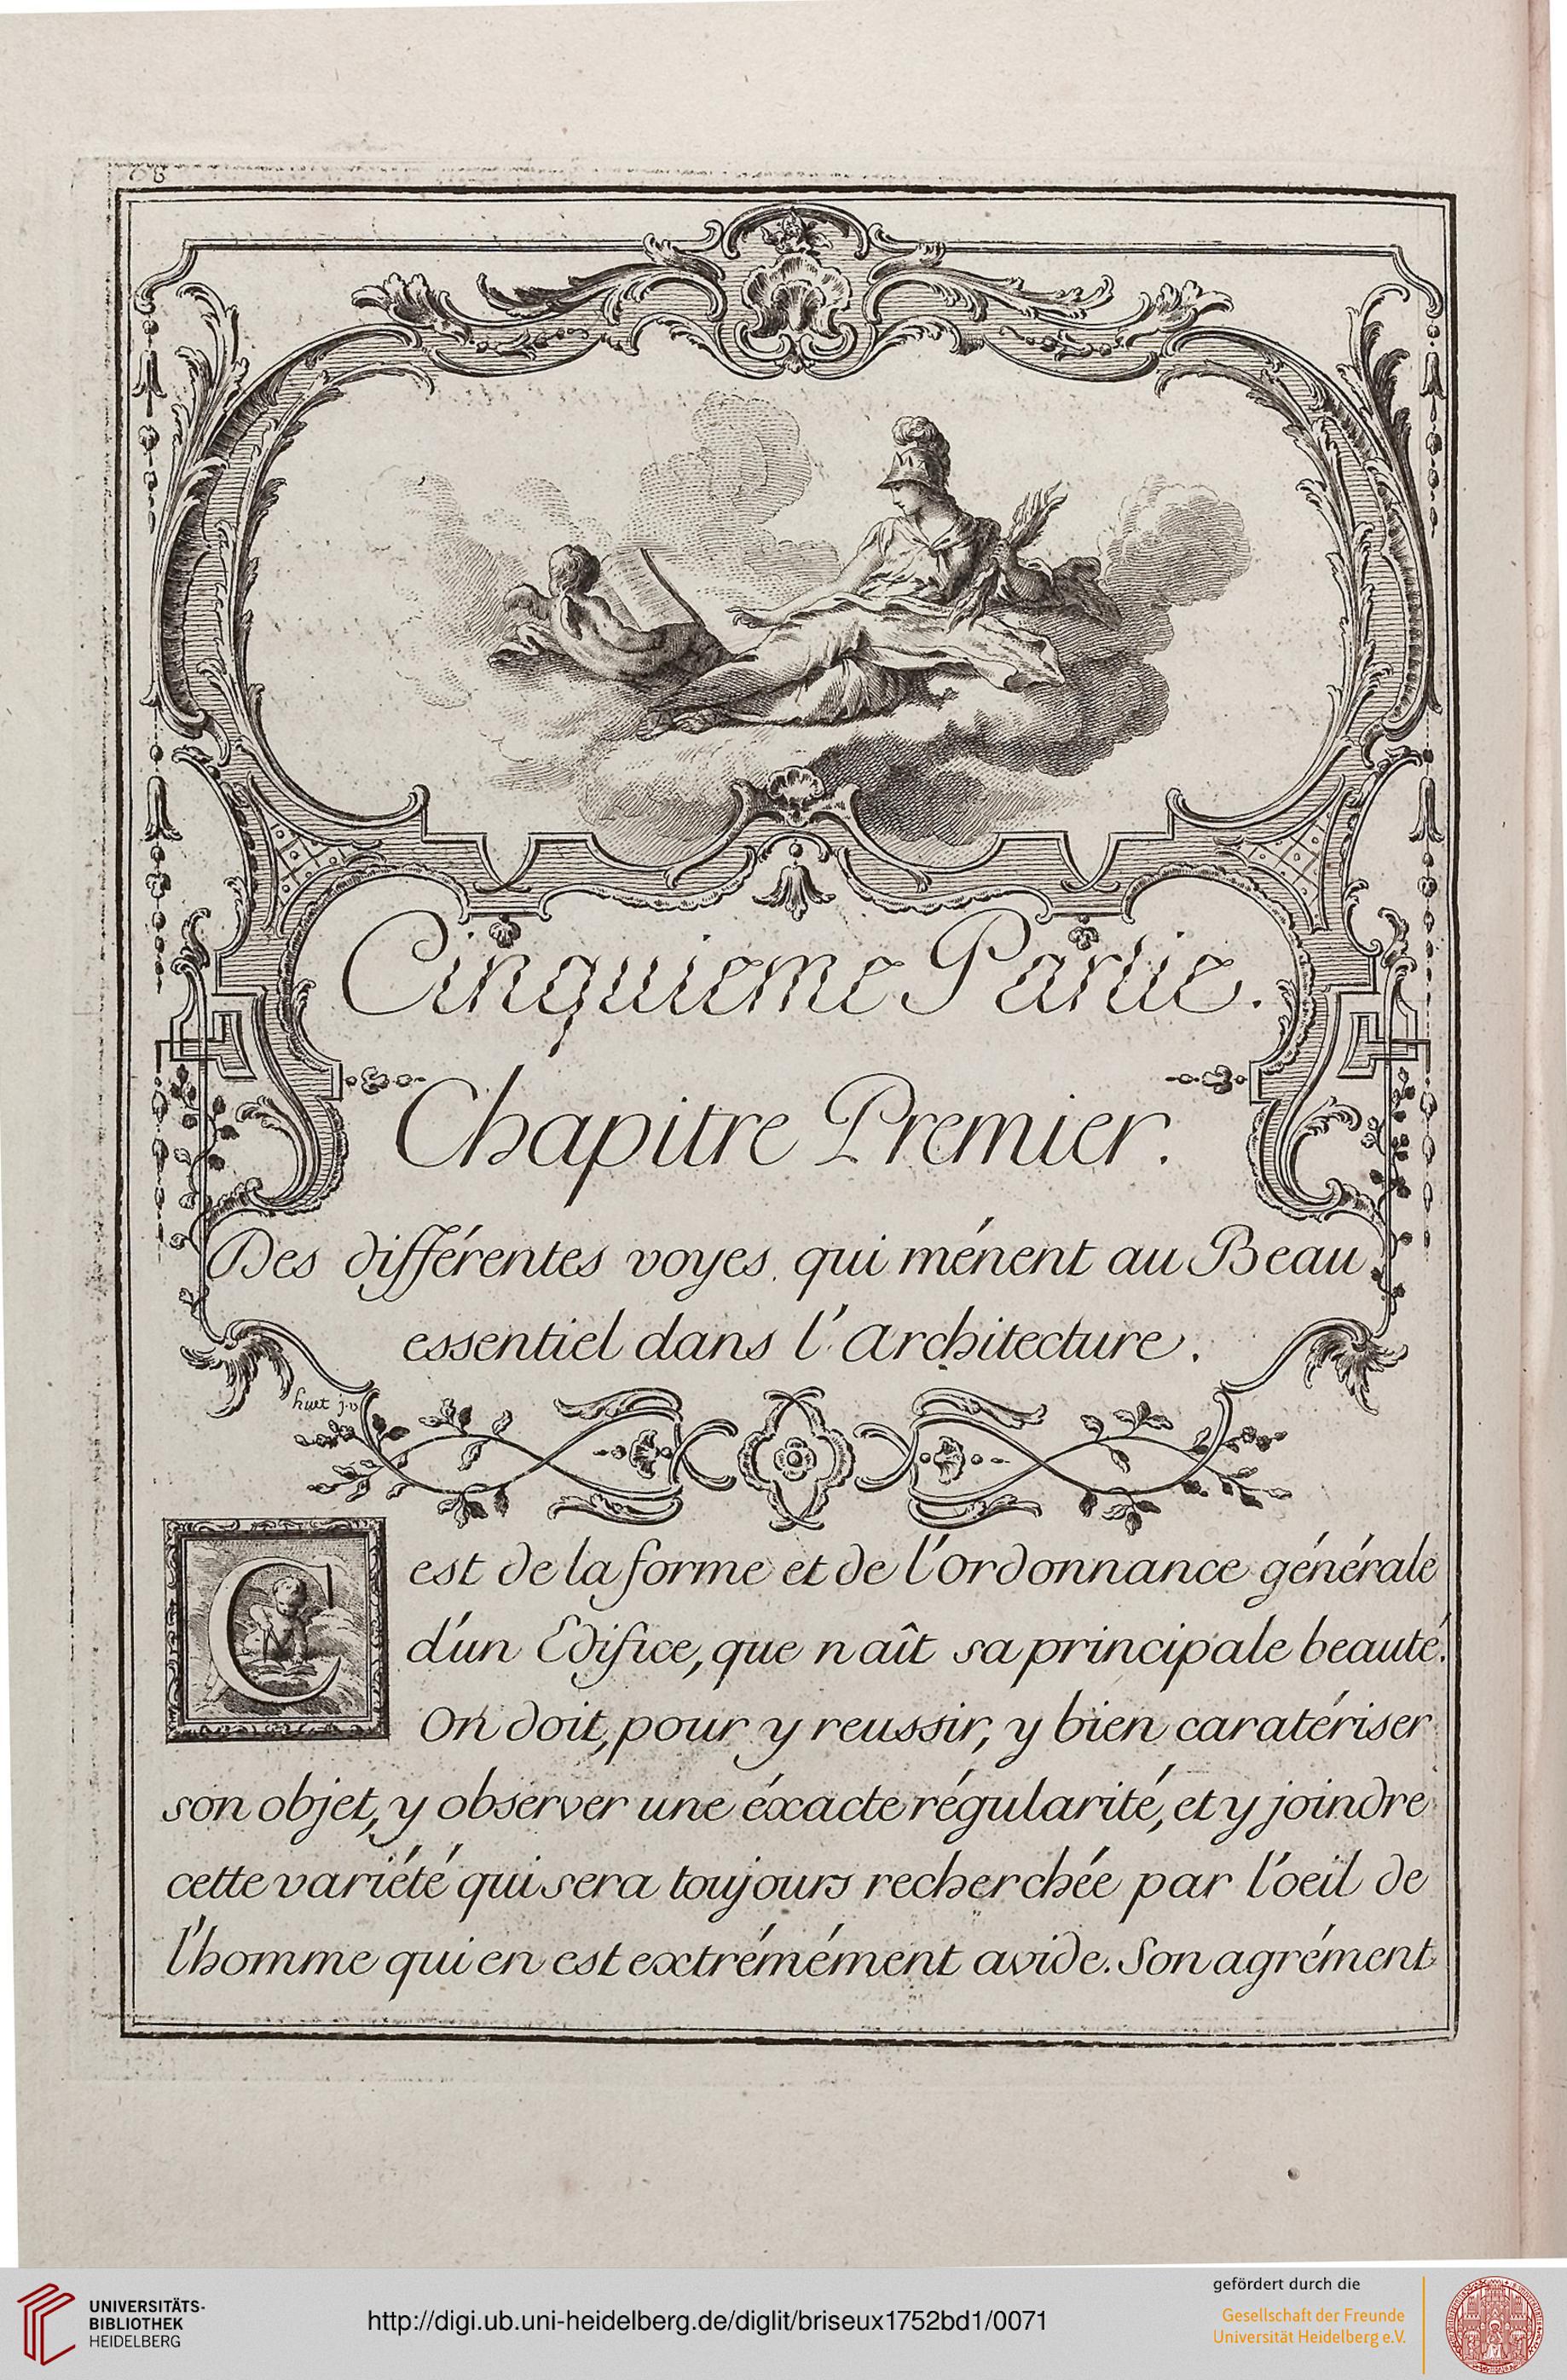 68
Cinquieme Partie.
Chapitre Premier.
Des différentes voyes qui ménent au Beau
essentiel dans l'Architecture.
huet
C'est de la forme et de l'Ordonnance générale
d'un Edifice, que naît sa principale beauté.
On doit, pour y reussir, y bien caratériser
son objet, y observer une éxacte régularité, et y joindre
cette variété qui sera toujours recherchée par l'oeil de
l'homme qui en est extrémément avide. Son agrément
UNIVERSITÄTS-
BIBLIOTHEK
HEIDELBERG
http://digi.ub.uni-heidelberg.de/diglit/briseux1752bd1/0071
gefördert durch die
Gesellschaft der Freunde
Universität Heidelberg e.V.